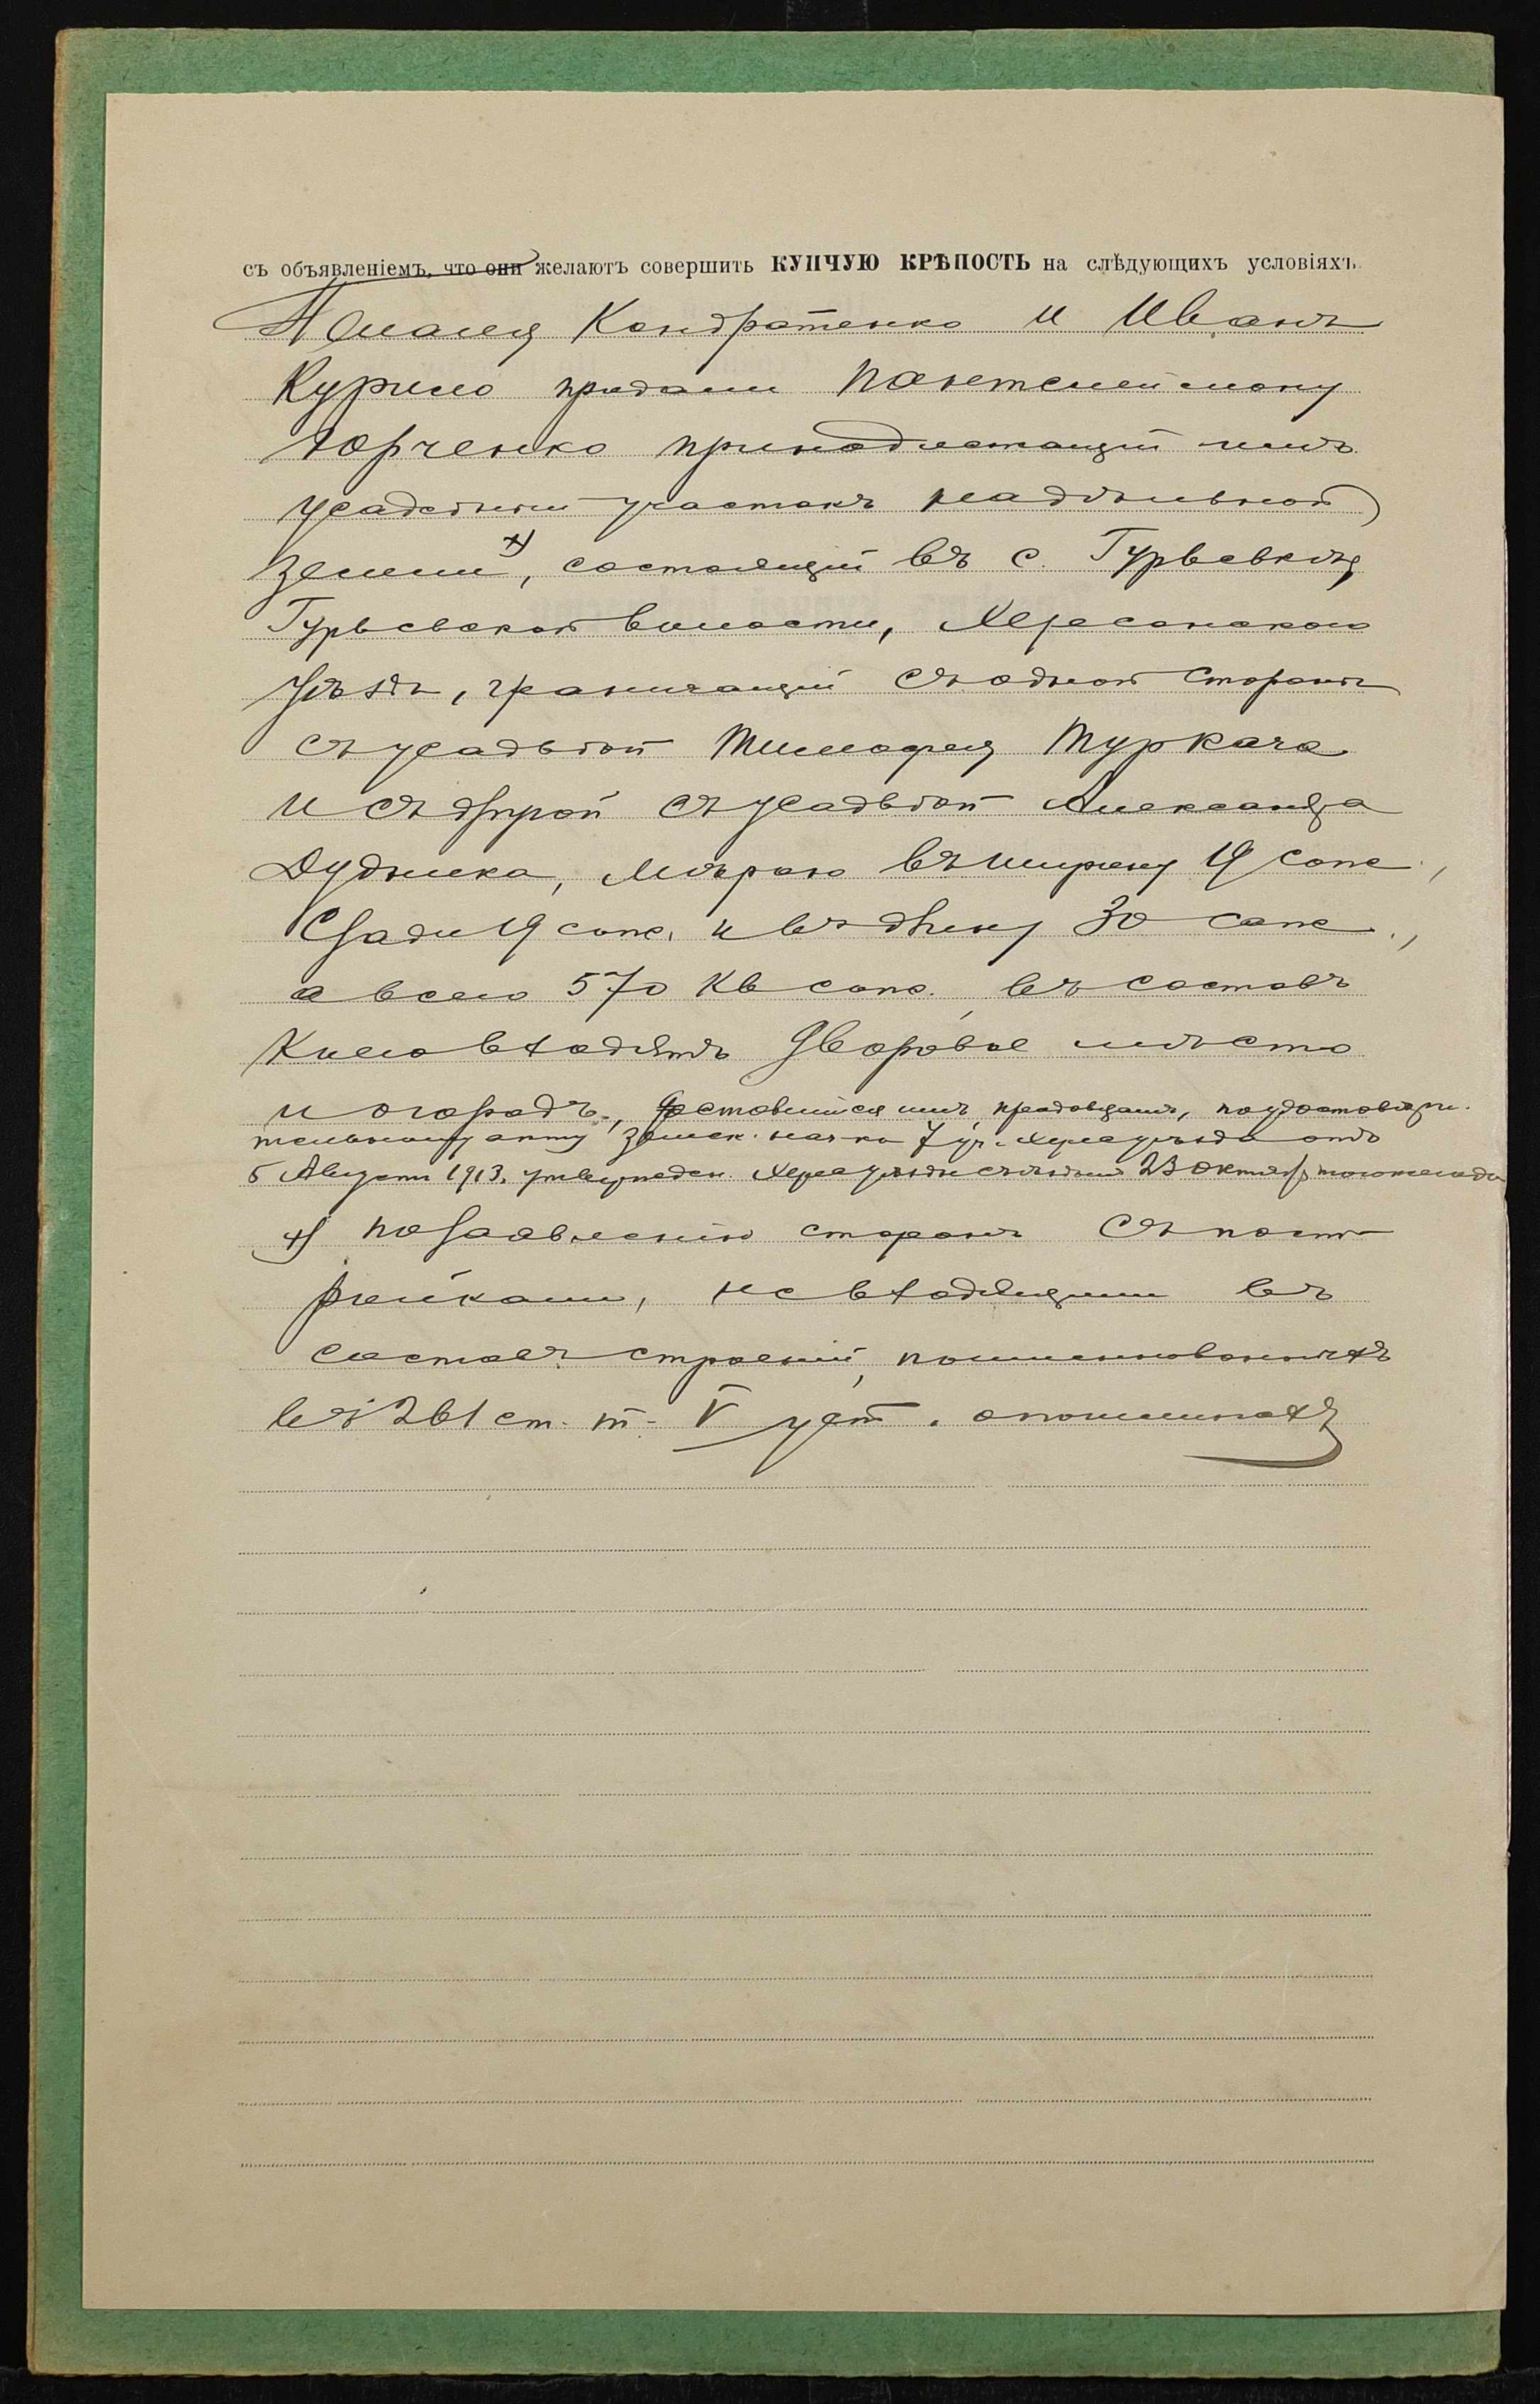 съ объявленіемъ, что они желаютъ совершить КУПЧУЮ КРѢПОСТЬ на слѣдующихъ условіяхъ.
Кондратенко и Иванъ
Курило продали Пантелеймону
Юрченко принадлежащій имъ
усадебный участокъ надѣльной
земли х), состоящій въ с. Гурьевкѣ,
Гурьевской волости, Херсонскаго
уѣзда, граничащій съ одной стороны
съ усадьбой Тимофея Туркача
и съ другой съ усадьбой Александра
Дудника, мѣрою въ ширину 19 саж.,
сзади 19 саж. и въ длину 30 саж.,
а всего 570 кв саж., въ составъ
коего входятъ дворовое мѣсто
и огородъ, доставшійся имъ, продавцамъ, по удостовѣри-
тельному акту Земск. нач-ка 7 уч. Херс. уѣзда отъ
5 Августа 1913, утвержден. Херс. уѣздн. съѣздомъ 23 Октября того же года
х) по заявленію сторонъ съ пост-
ройками, не входящими въ
составъ строеній, поименованныхъ
въ 261 ст. т. V уст. о пошлинахъ